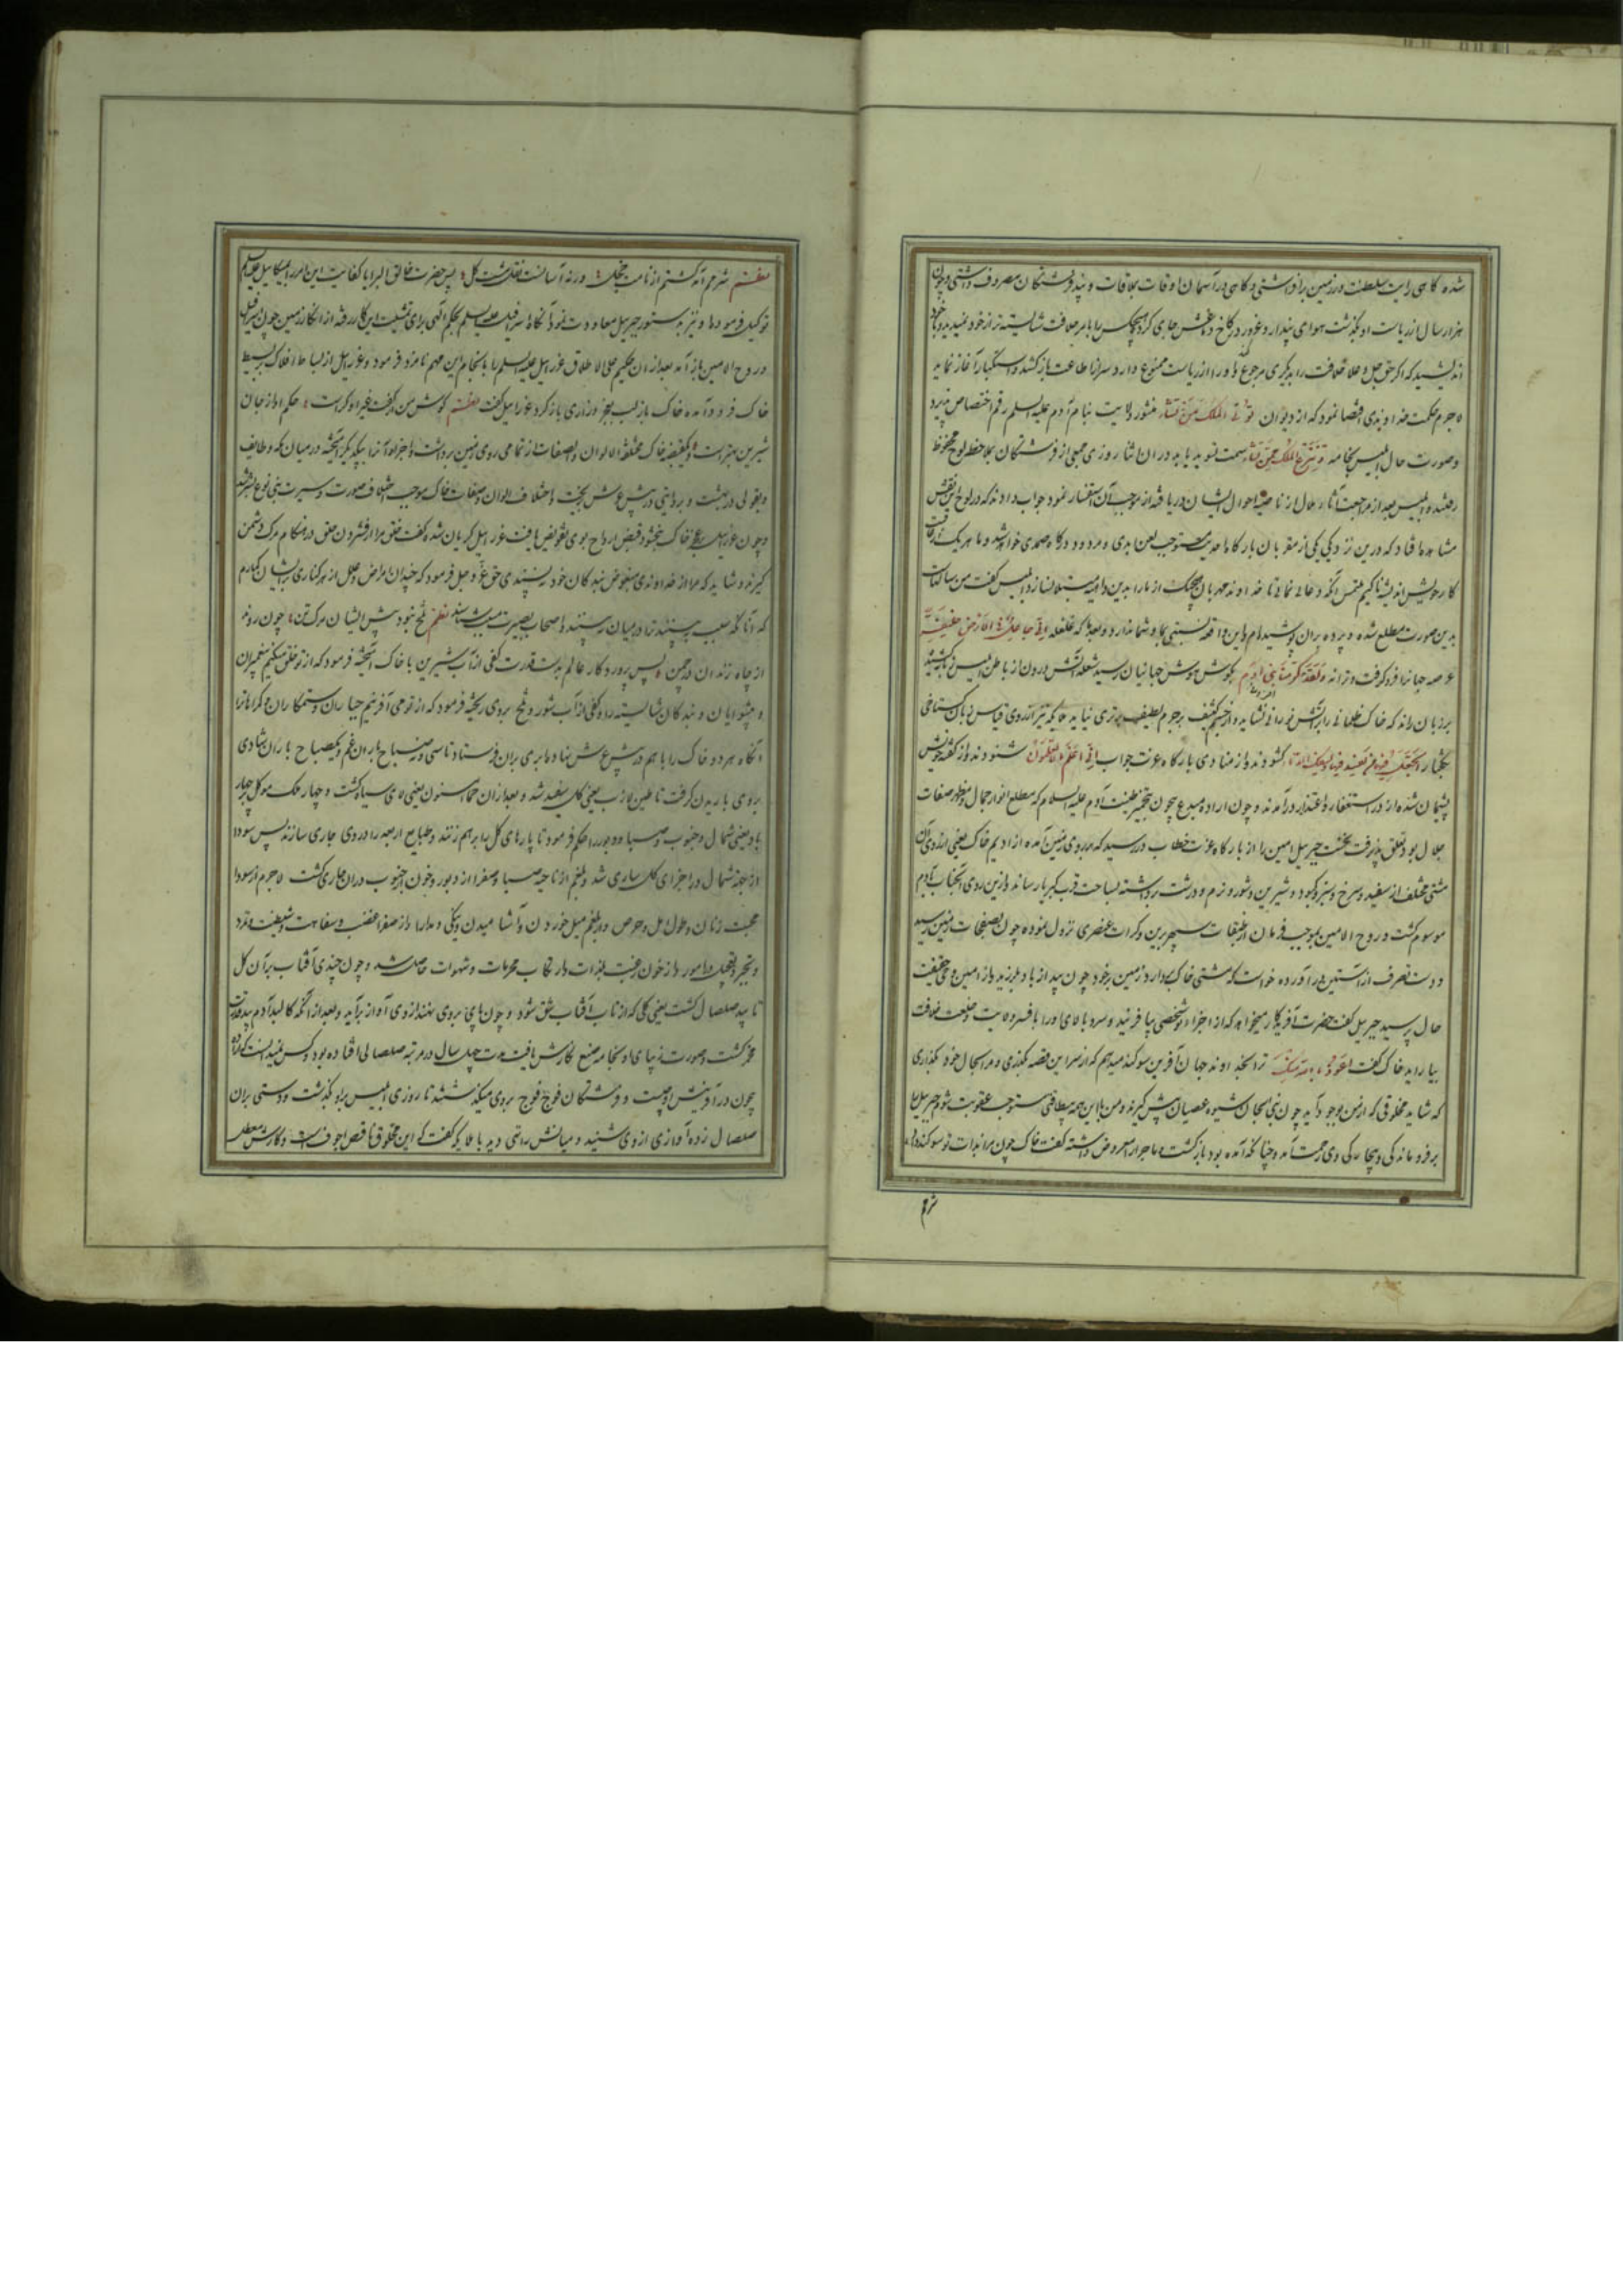 شده گاهی رایت سلطنت در زمین برافراشتی و گاهی در آسمان اوقات بطاعات و پند فرشتگان مصروف داشتی و چون
هزار سال از ریاست او بگذشت هوای پندار و غرور در کاخ دماغش جای کرد هیچکس را بامر خلافت شایسته تر از خود نمیدید و با خود
اندیشید که اگر حق جل و علا خلافت را بدیگری مرجوع و او را از ریاست ممنوع دارد سر از اطاعت باز کشد و استکبار آغاز نماید
لاجرم حکمت خداوندی اقتضا نمود که از دیوان تؤتی الملک من تشاء منشور ولایت بنام آدم علیه السلم رقم اختصاص پذیرد
وصورت حال ابلیس بخامه و تنزع الملک ممن تشاء سمت تسوید یابد در آن اثنا روزی جمعی از فرشتگان بملاحظه لوح محفوظ
رفتند ابلیس بعد از مراجعت آثار ملال از ناصیه احوال ایشان دریافته از موجب آن استفسار نمود جواب دادند که در لوح این نقش
مشاهده افتاد که درین نزدیکی یکی از مقربان بارگاه احدیت مستوجب لعن ابدی و مردود درگاه صمدی خواهد شد و ما هر یک از عاقبت
کار خویش اندیشناکیم ملتمس آنکه دعایی نمایی تا خداوند مهربان هیچیک از ما را بدین داهیه مبتلا نسازد ابلیس گفت من سالهاست
بدین صورت مطلع شده و پرده بران پوشیده‌ام و این واقعه نسبتی بما و شما ندارد و بعد که غلغله انی جاعل فی الارض خلیفة
عرصه جهانرا فرو گرفت و ترانه و لقد کرمنا بنی آدم بگوش هوش جهانیان رسید شعله آتش درون از باطن ابلیس زبانه کشید
بر زبان راند که خاک ظلمانی را بر آتش نورانی نشاید و از جسم کثیف بر جرم لطیف برتری نیاید ملایکه نیز از روی قیاس زبان گستاخی
بگفتار اتجعل فیها من یفسد فیها و یسفک الدماء گشودند و از منادی بارگاه عزت جواب انی اعلم ما لا تعلمون شنودند و از گفته خویش
پشیمان شده از در استغفار و اعتذار درآمدند و چون اراده مبدع بیچون بتخمیر طینت آدم علیه السلام که مطلع انوار جمال و مظهر صفات
جلال بود تعلق پذیرفت نخست جبرئیل امین را از بارگاه عزت خطاب در رسید که بر روی زمین آمده از ادیم خاک یعنی از روی آن
مشتی مختلف از سفید و سرخ و سبز و کبود و شیرین و شور و نرم و درشت برداشته بساحت قرب کبریا رساند و ازین روی آنجناب بآدم
موسوم گشت و روح الامین بموجب فرمان از طبقات سپهر برین و کرات عنصری نزول نموده چون بصفحات زمین رسید
و دست تصرف از آستین برآورده خواست که مشتی خاک بردارد زمین بر خود چون بید از باد بلرزید و از امین وحی حقیقت
حال پرسید جبرئیل گفت حضرت آفریدگار میخواهد که از اجزاء تو شخصی بیافریند و سر و بالای او را بافسر ولایت و خلعت خلافت
بیاراید خاک گفت اعوذ بالله منک ترا بخداوند جهان آفرین سوگند میدهم که از سر این قصه بگذری و مرا بحال خود بگذاری
که شاید مخلوقی که از من بوجود آید چون بنی الجان شیوه عصیان پیش گیرند و من با این همه بیطاقتی مستوجب عقوبت شوم جبرئیل را
بر فروماندگی و بیچارگی وی رحمت آمد و چنانکه آمده بود بازگشت و ماجرا را معروض داشته گفت خاک چون مرا بذات تو سوگند داد
شرم
نظم شرمم آمد گشتم از نامت خجل ورنه آسانست نقل مشت گل پس حضرت خالق البرایا کفایت این امر را بمیکائیل علیه السلم
توکیل فرمود و او نیز بدستور جبرئیل معاودت نمود آنگاه اسرافیل علیه السلم بحکم الهی برای تمشیت این کار رفته از انکار زمین چون میکائیل
و روح الامین باز آمد بعد از آن حکیم علی الاطلاق عزرائیل علیه السلم را بانجام این مهم نامزد فرمود و عزرائیل از بساط افلاک ببسیط
خاک فرود آمده خاک باز لب بعجز و زاری باز کرد عزرائیل گفت نظم گوش من از گفت غیر او کرست حکم او از جان
شیرین بهترست و یکقبضه خاک مختلف الالوان و الصفات از تمامی روی زمین برداشت و اجزاء آنرا بیکدیگر آمیخته در میان مکه و طایف
و بقولی در بهشت و بروایتی در پیش عرش بیخت و اختلاف الوان و صفات خاک موجب اختلاف صورت و سیرت بنی نوع بشر شد
و چون عزرائیل بر عجز خاک نبخشود قبض ارواح بوی تفویض یافت عزرائیل گریان شده گفت خلق مرا از فشردن حلق در هنگام مرگ دشمن
گیرند و شاید که مرا از خداوندی مبغوض بندگان خود نپسندی حق عز و جل فرمود که چندان امراض و علل از هر کناری برایشان گمارم
که آنانکه سبب بینند ترا در میان نبینند و اصحاب بصیرت نظم تلخ نبود پیش ایشان مرگ تن چون روند
از چاه زندان در چمن پس پروردگار عالم بدست قدرت کفی از آب شیرین با خاک آمیخته فرمود که از تو خلق میکنم پیغمبران
و پیشوایان و بندگان شایسته را و کفی از آب شور و تلخ بروی ریخته فرمود که از تو می آفرینم جباران و ستمکاران و گمراهان را
آنگاه هر دو خاک را با هم در پیش عرش نهاد و ابری بران فرستاد تا سی و نه صباح باران غم و یکصباح باران شادی
بروی باریدن گرفت تا طین لازب یعنی گل سفید شد و بعد از آن حماء مسنون یعنی لای سیاه گشت و چهار ملک موکل چهار
باد یعنی شمال و جنوب و صبا و دبور را حکم فرمود تا پارهای گل را بر هم زنند و طبایع اربعه را در وی جاری سازند پس سودا
از جهة شمال در اجزای گل ساری شد و بلغم از ناحیه صبا و صفرا از دبور و خون از جنوب در آن جاری گشت لاجرم از سودا
محبت زنان و طول امل و حرص و از بلغم میل خوردن و آشامیدن و نیکی و مدارا و از صفرا غضب و سفاهت و شیطنت و تمرد
و تجبر و تعجیل در امور و از خون رغبت بلذات و ارتکاب محرمات و شهوات حاصل شد و چون چندی آفتاب بر آن گل
تابید صلصال گشت یعنی گلی که از تاب آفتاب شق شود و چون پای بروی نهند از وی آواز برآید و بعد از آنکه کالبد آدم بید قدرت
مخمر گشت و صورت زیبای او بخامه صنع نگارش یافت مدت چهل سال در مرتبه صلصالی افتاده بود و کس نمیدانست که مراد
بیچون در آفرینش او چیست و فرشتگان فوج فوج بروی میگذشتند تا روزی ابلیس بر او گذشت و دستی بران
صلصال زده آوازی از وی شنید و میانش را تهی دید با ملایکه گفت که این مخلوق ناقص اجوفست و کارش معطل